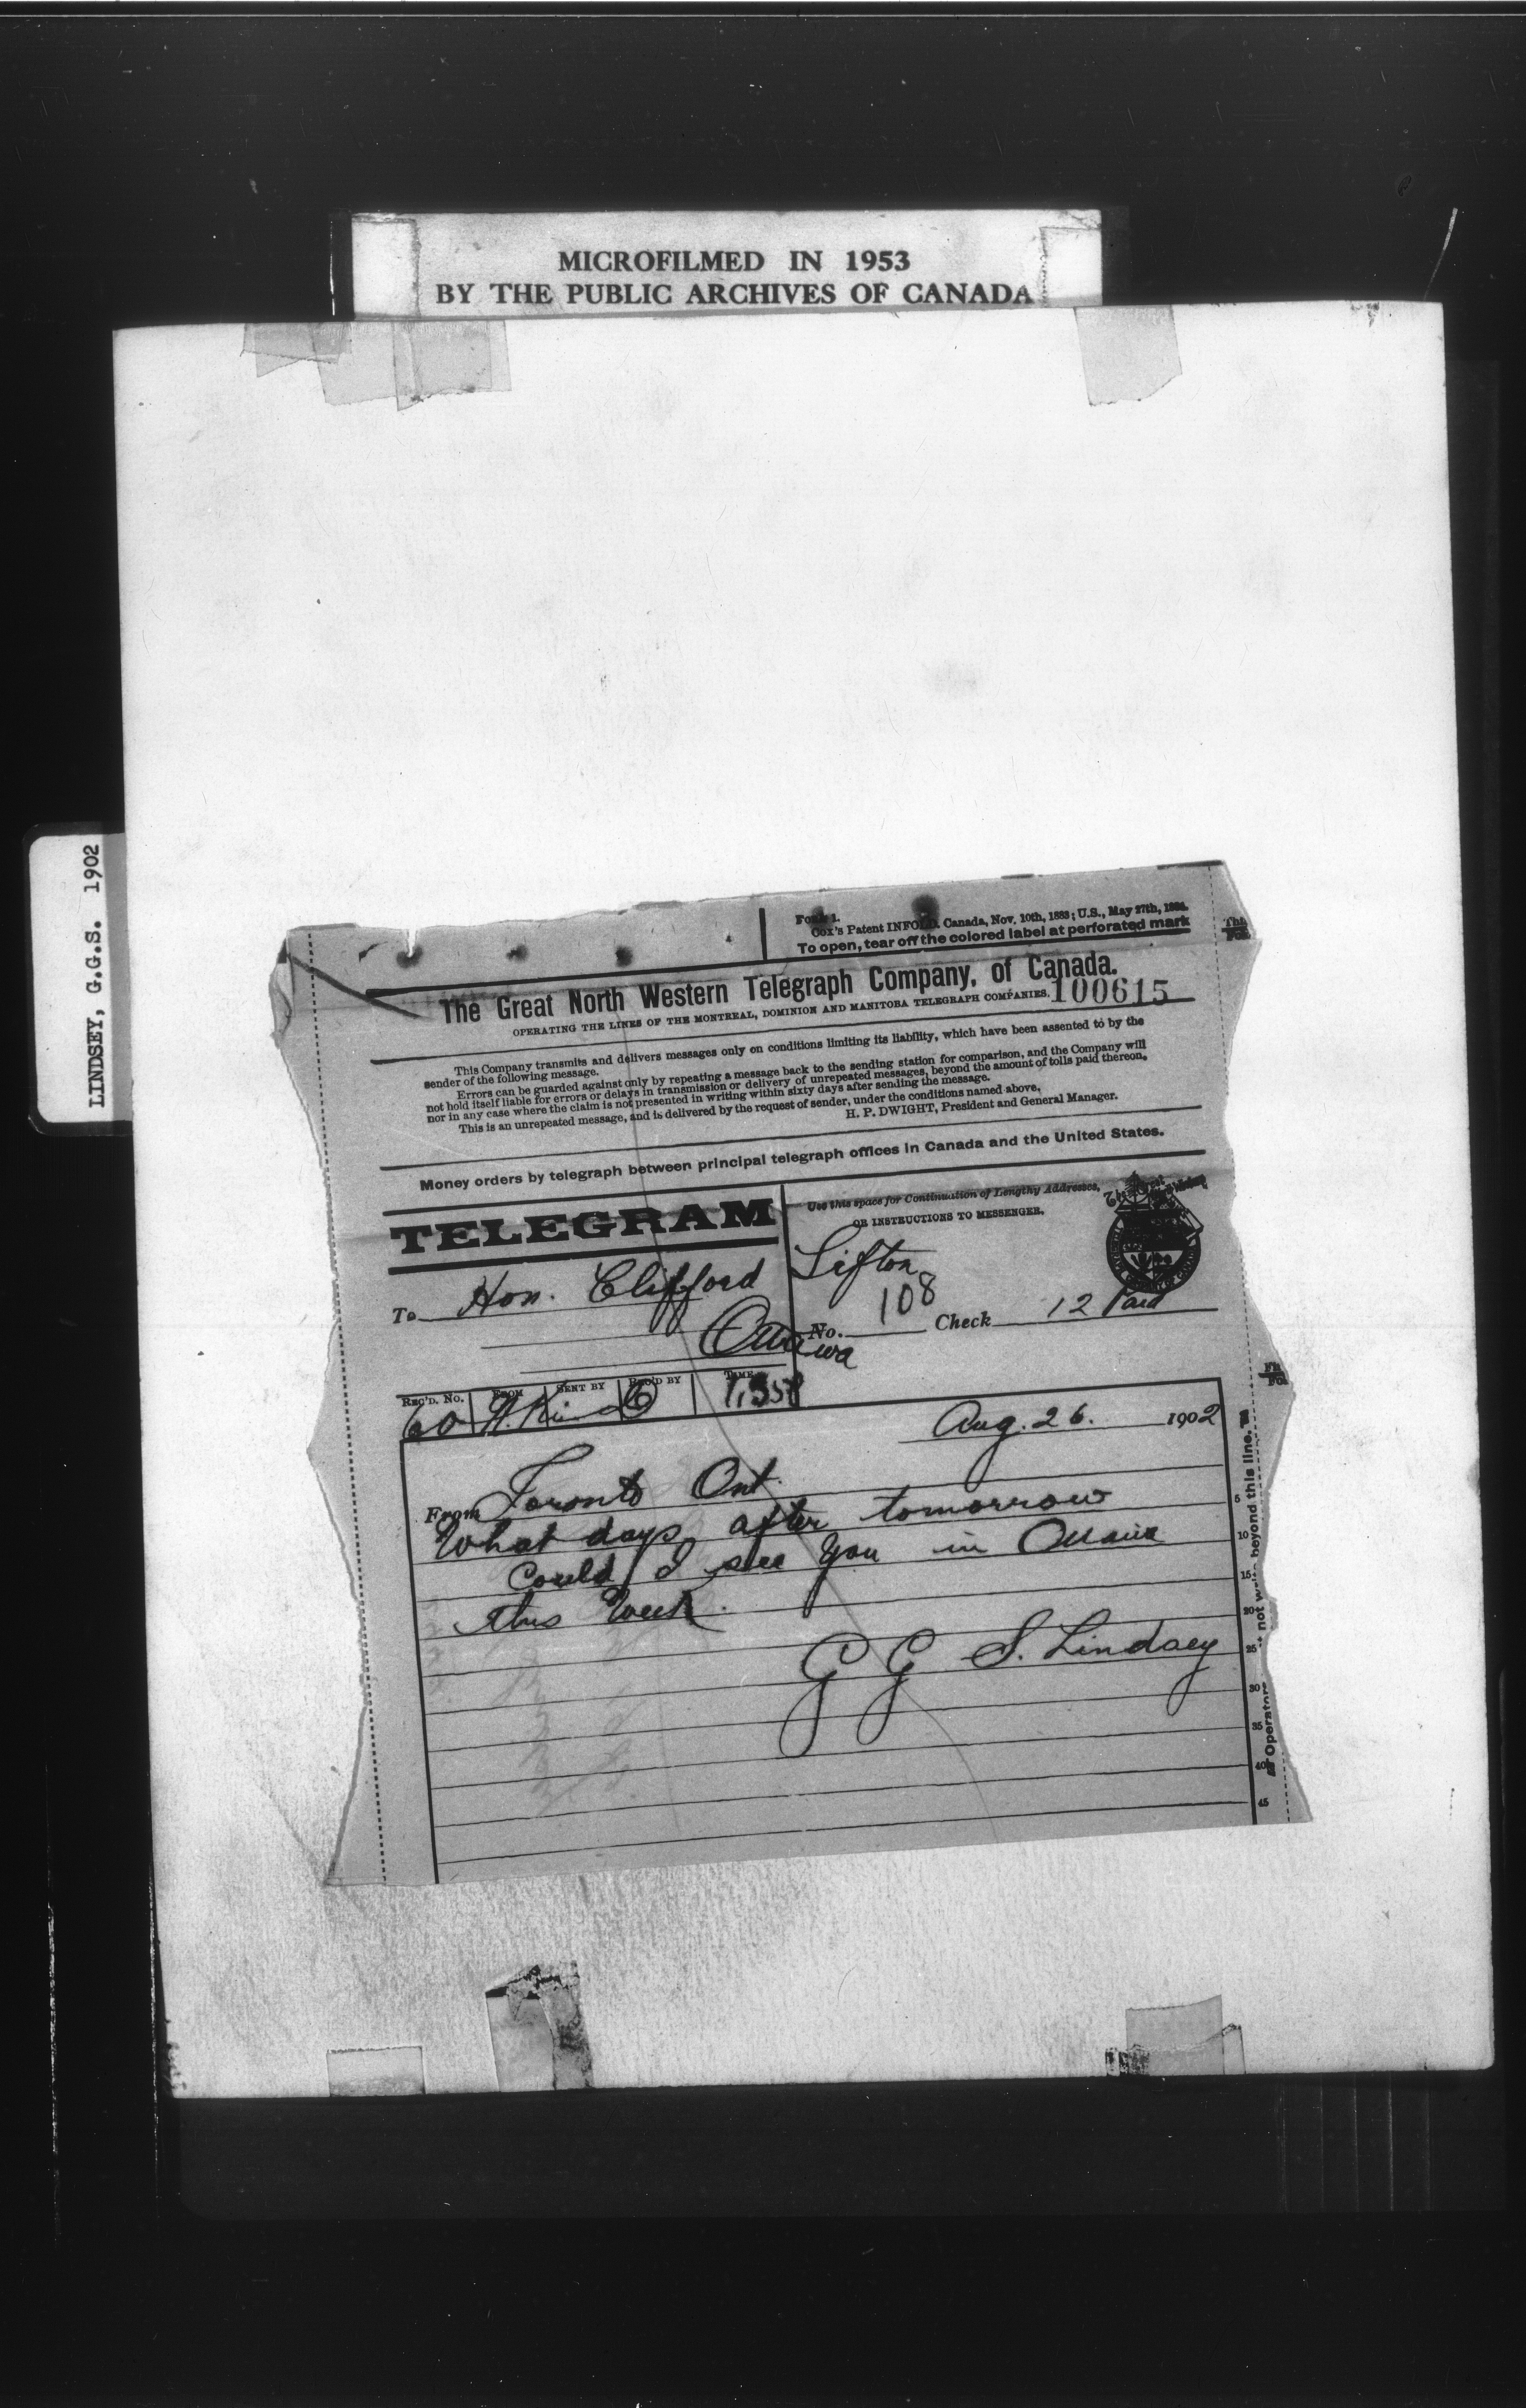 MICROFILMED IN 1953
BY THE PUBLIC ARCHIVES OF CANADA
LINDSEY, G.G.S. 1902
Form 1.
Cox's Patent INFOLD. Canada, Nov. 10th, 1883; U.S., May 27th, 1884.
To open, tear off the colored label at perforated mark
The Great North Western Telegraph Company, of Canada.
OPERATING THE LINES OF THE MONTREAL, DOMINION AND MANITOBA TELEGRAPH COMPANIES.
100615
This Company transmits and delivers messages only on conditions limiting its liability, which have been assented to by the
sender of the following message.
Errors can be guarded against only by repeating a message back to the sending station for comparison, and the Company will
not hold itself liable for errors or delays in transmission or delivery of unrepeated messages, beyond the amount of tolls paid thereon,
nor in any case where the claim is not presented in writing within sixty days after sending the message.
This is an unrepeated message, and is delivered by the request of sender, under the conditions named above,
H. P. DWIGHT, President and General Manager.
Money orders by telegraph between principal telegraph offices in Canada and the United States.
TELEGRAM
Use this space for Continuation of Lengthy Addresses,
OR INSTRUCTIONS TO MESSENGER.
To Hon. Clifford Sifton
Ottawa
No. 108 Check 12 Paid
REC'D. No. FROM SENT BY REC'D BY TIME
60
Aug. 26. 1902
From Toronto Ont.
What days after tomorrow
Could I see you in Ottawa
this Week.
G G S. Lindsey
5
10
15
20
25
30
35
40
45
Operators not beyond this line.